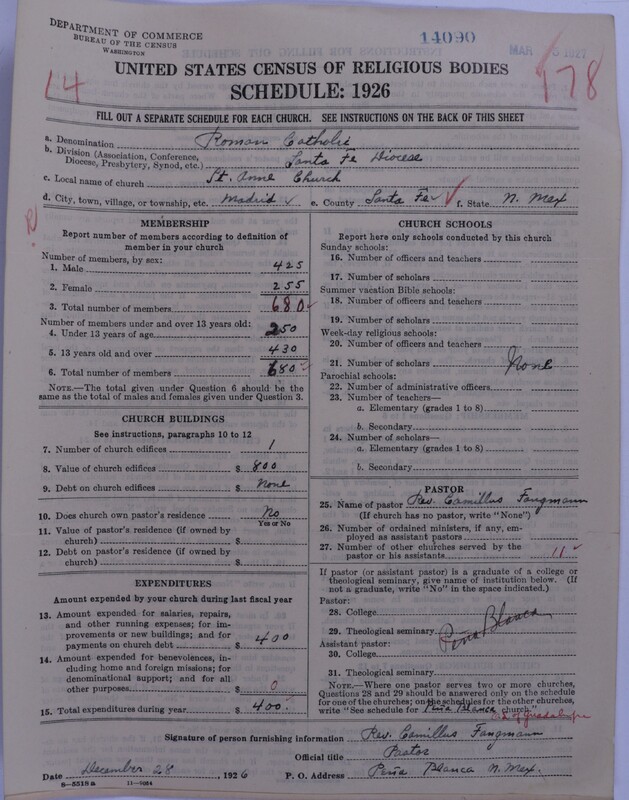 DEPARTMENT OF COMMERCE
BUREAU OF THE CENSUS
WASHINGTON
14090
MAR 5 1927
14
778
UNITED STATES CENSUS OF RELIGIOUS BODIES
SCHEDULE: 1926
FILL OUT A SEPARATE SCHEDULE FOR EACH CHURCH. SEE INSTRUCTIONS ON THE BACK OF THIS SHEET
a. Denomination Roman Catholic
b. Division (Association, Conference, Diocese, Presbytery, Synod, etc.) Santa Fe Diocese
c. Local name of church St. Anne Church
d. City, town, village, or township, etc. Madrid e. County Santa Fe f. State N. Mex
MEMBERSHIP
Report number of members according to definition of
member in your church
Number of members, by sex:
1. Male 425
2. Female 255
3. Total number of members 680
Number of members under and over 13 years old:
4. Under 13 years of age 250
5. 13 years old and over 430
6. Total number of members 680
NOTE.—The total given under Question 6 should be the
same as the total of males and females given under Question 3.
CHURCH BUILDINGS
See instructions, paragraphs 10 to 12
7. Number of church edifices 1
8. Value of church edifices $ 800
9. Debt on church edifices $ None
10. Does church own pastor's residence? No
Yes or No
11. Value of pastor's residence (if owned by
church) $
12. Debt on pastor's residence (if owned by
church) $
EXPENDITURES
Amount expended by your church during last fiscal year
13. Amount expended for salaries, repairs,
and other running expenses; for im-
provements or new buildings; and for
payments on church debt $ 400
14. Amount expended for benevolences, in-
cluding home and foreign missions; for
denominational support; and for all
other purposes $ 0
15. Total expenditures during year $ 400
CHURCH SCHOOLS
Report here only schools conducted by this church
Sunday schools:
16. Number of officers and teachers
17. Number of scholars
Summer vacation Bible schools:
18. Number of officers and teachers
19. Number of scholars
Week-day religious schools:
20. Number of officers and teachers
21. Number of scholars None
Parochial schools:
22. Number of administrative officers
23. Number of teachers—
a. Elementary (grades 1 to 8)
b. Secondary
24. Number of scholars—
a. Elementary (grades 1 to 8)
b. Secondary
PASTOR
25. Name of pastor Rev. Camillus Fangmann
(If church has no pastor, write "None")
26. Number of ordained ministers, if any, em-
ployed as assistant pastors
27. Number of other churches served by the
pastor or his assistants 11
If pastor (or assistant pastor) is a graduate of a college or
theological seminary, give name of institution below. (If
not a graduate, write "No" in the space indicated.)
Pastor:
28. College
29. Theological seminary Peña Blanca
Assistant pastor:
30. College
31. Theological seminary
NOTE.—Where one pastor serves two or more churches,
Questions 28 and 29 should be answered only on the schedule
for one of the churches; on the schedules for the other churches,
write "See schedule for Peña Blanca church."
of Guadalupe
Signature of person furnishing information Rev. Camillus Fangmann
Official title Pastor
Date December 28, 1926 P. O. Address Peña Blanca N. Mex.
8—5518a 11—9024